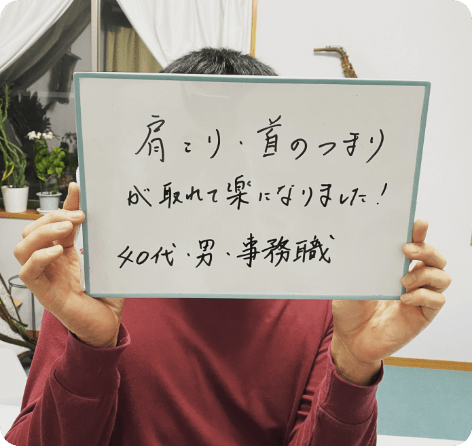 肩こり・首のつまり
が取れて楽になりました!
40代・男・事務職